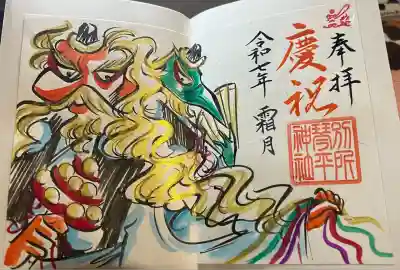 奉拝
慶祝
別所
琴平
神社
令和七年 霜月